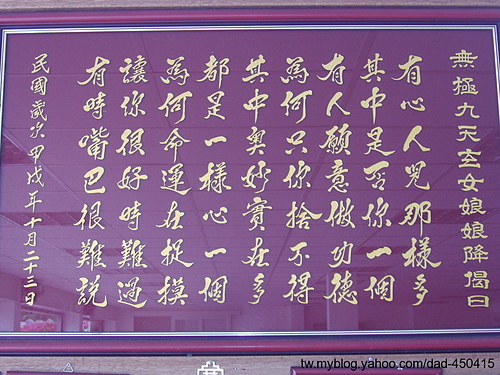 無極九天玄女娘娘降偈曰
有心人兒那樣多
其中是否你一個
有人願意做功德
為何只你捨不得
其中奧妙實在多
都是一樣心一個
為何命運在捉摸
讓你很好時難過
有時嘴巴很難説
民國歲次甲戌年十月二十三日
tw.myblog.yahoo.com/dad-450415